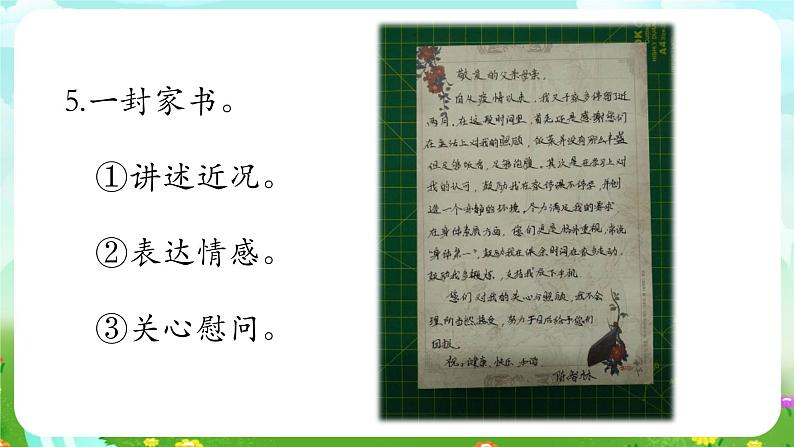 5.一封家书。
①讲述近况。
②表达情感。
③关心慰问。
敬爱的父亲母亲。
自从疫情以来，我又于家多停留了近
两月，在这段时间里，首先还是感谢您们
在生活上对我的照顾，饭菜并没有那么丰盛
但足够饭香，足够饱腹。其次是在学习上对
我的认可，鼓励我在家停课不停学，并创
造一个安静的环境。尽力满足我的要求
在身体素质方面，您们更是格外重视，常说
"身体第一"，鼓励我在课余时间在家多运动，
鼓励我多锻炼，支持我放下手机
您们对我的关心与照顾，我不会
理所当然接受，努力于日后给予您们
回报。
祝：健康、快乐、和谐
陈
林